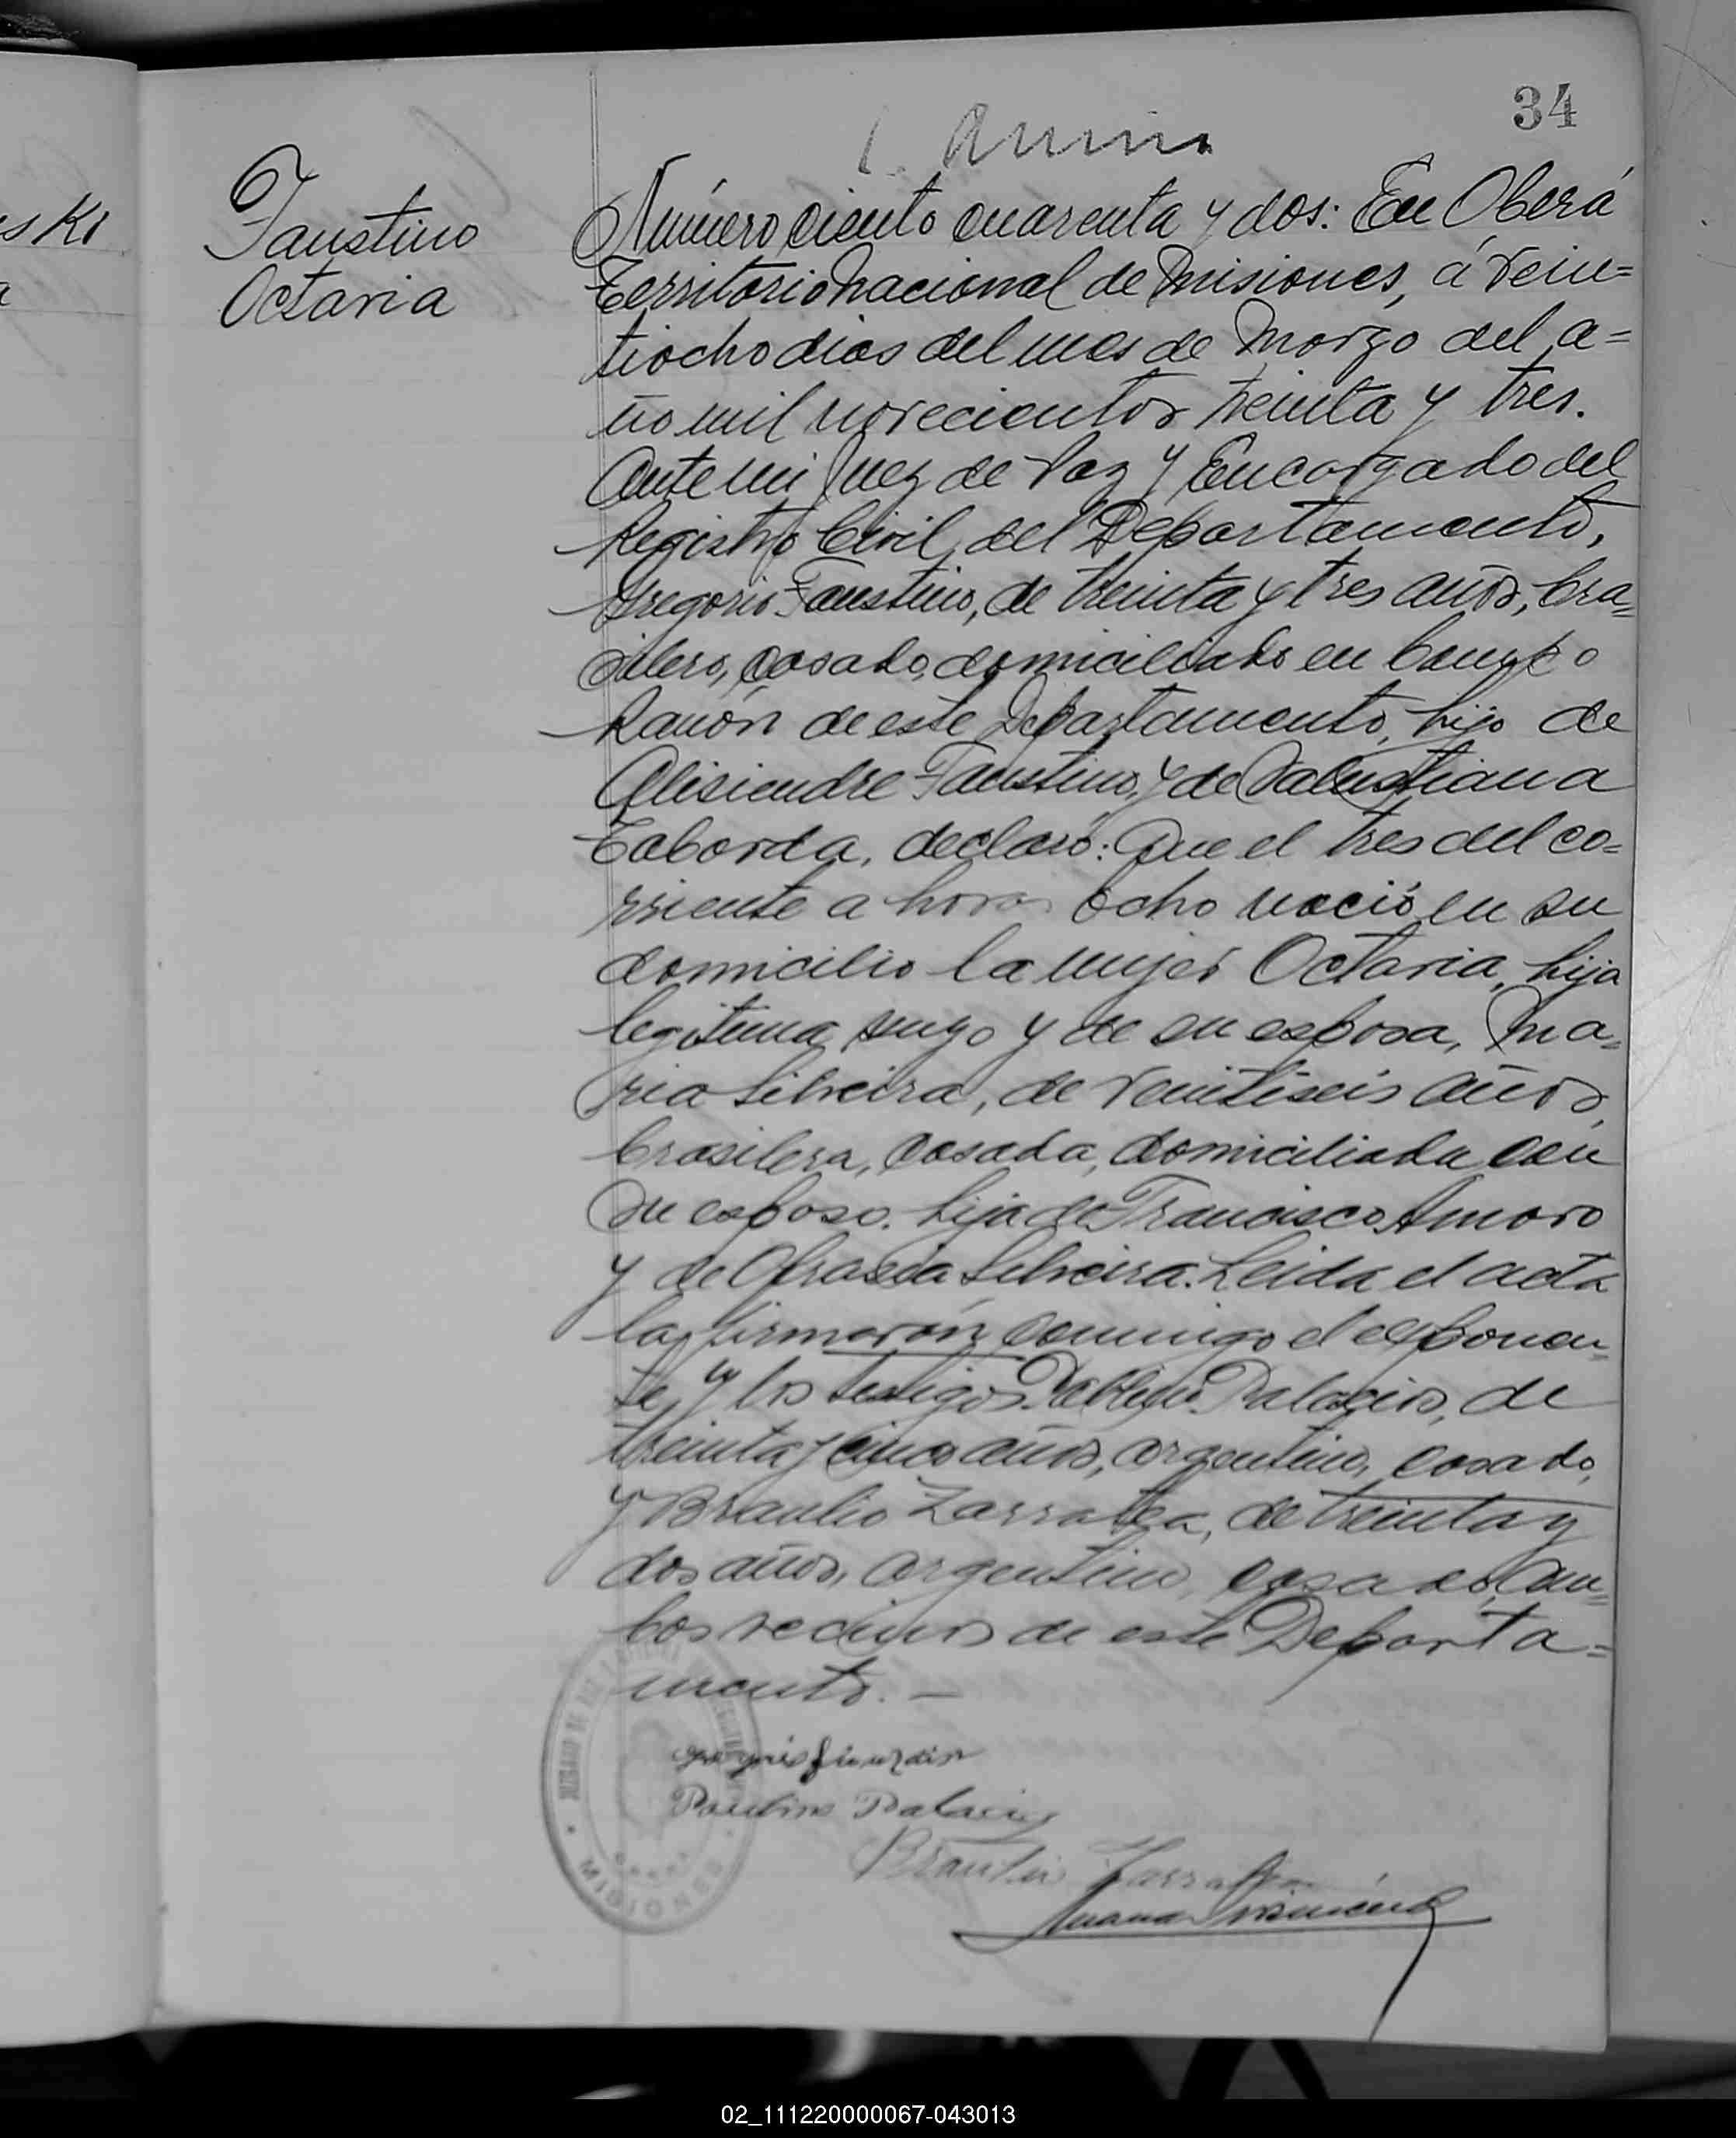 34
Faustino
Octavia
Número ciento cuarenta y dos: En Oberá
Territorio Nacional de Misiones, á vein=
tiocho dias del mes de Marzo del a=
ño mil novecientos treinta y tres.
Ante mi Juez de Paz y Encargado del
Registro Civil del Departamento,
Gregorio Faustino, de treinta y tres años, bra=
silero, casado, domiciliado en Campo
Ramón de este Departamento, hijo de
Faustino, y de Salustiana
Taborda, declaró: Que el tres del co=
rriente a horas ocho nació en su
domicilio la mujer Octavia, hija
legitima suya y de su esposa, Ma=
ria Silveira, de veintiseis años,
brasilera, casada, domiciliada con
su esposo. hija de Francisco Amoro
y de Silveira. Leida el acta
la firmarón conmigo el exponen=
te, y los testigos Palacios, de
treinta y cinco años, argentino, casado,
y Braulio Zarratea, de treinta y
dos años, argentino, casado, am=
bos vecinos de este Departa=
mento. —
Paulino Palacios
Braulio Zarratea
MISIONES
02_111220000067-043013